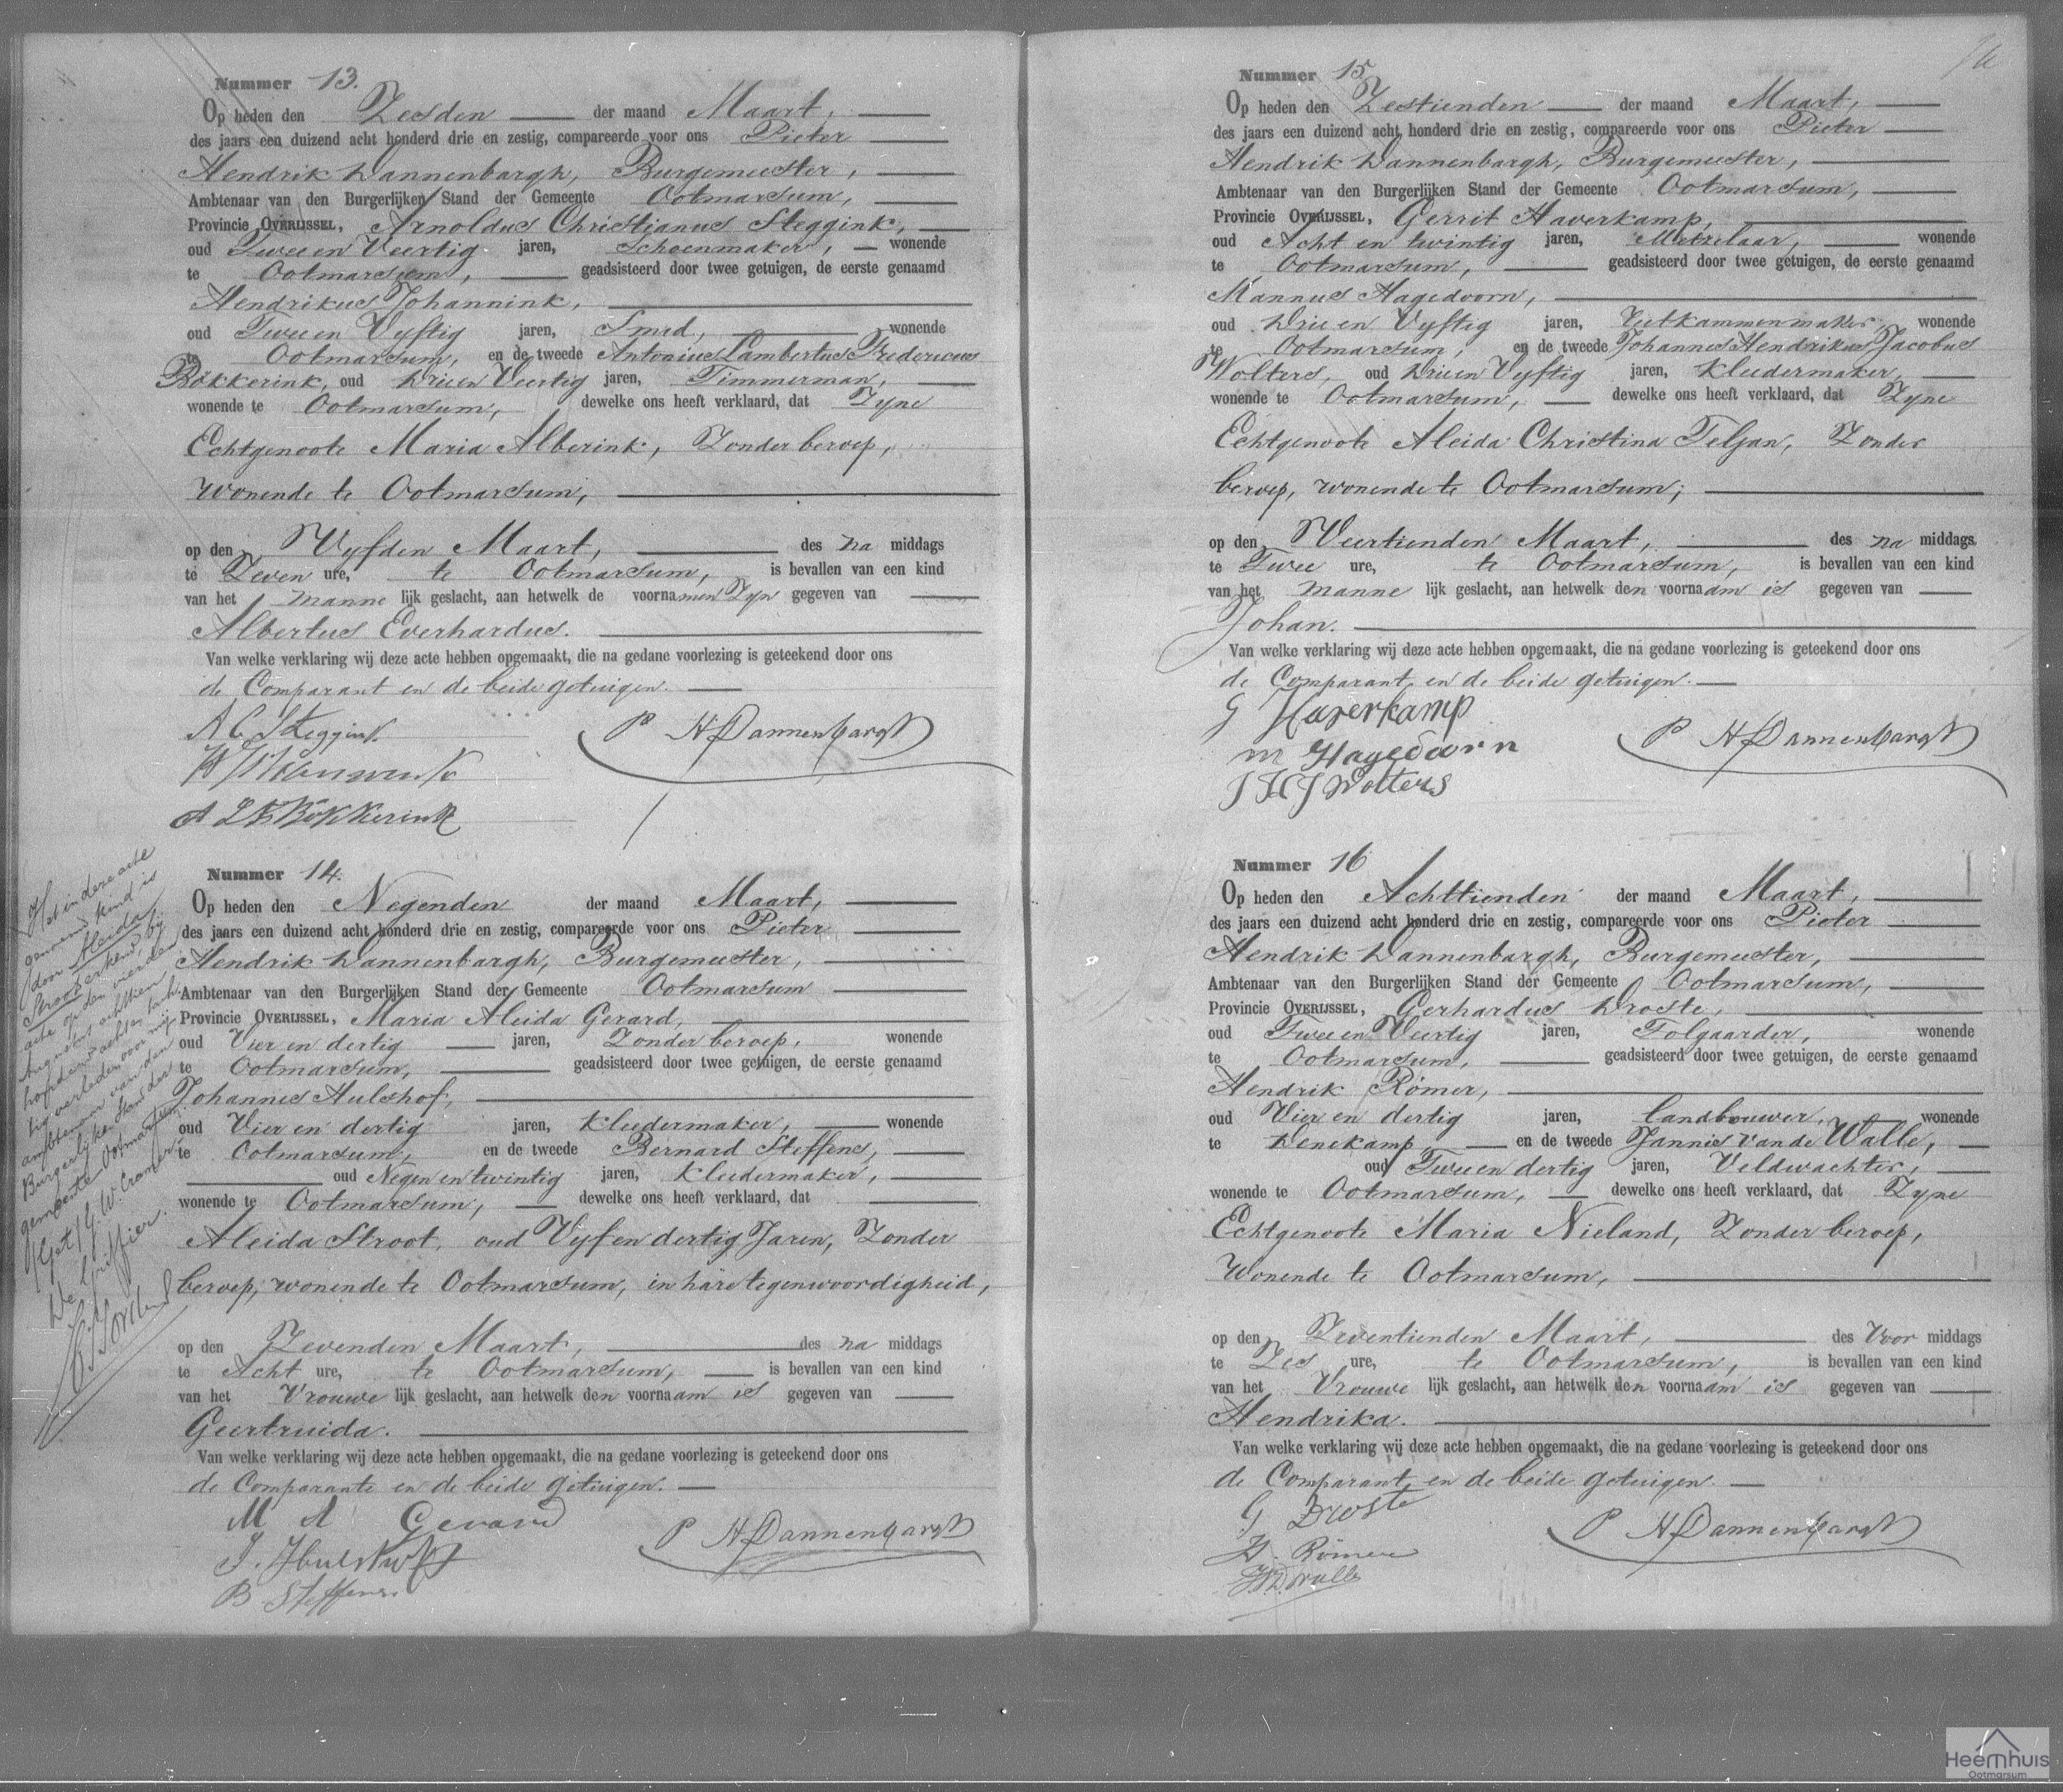 Nummer 13.
Op heden den Zesden der maand Maart,
des jaars een duizend acht honderd drie en zestig, compareerde voor ons Pieter
Hendrik Dannenbargh, Burgemeester,
Ambtenaar van den Burgerlijken Stand der Gemeente Ootmarsum,
Provincie OVERIJSSEL, Arnoldus Christianus Steggink,
oud Twee en Veertig jaren, Schoenmaker, wonende
te Ootmarsum, geadsisteerd door twee getuigen, de eerste genaamd
Hendrikus Johannink,
oud Twee en Vyftig jaren, Smid, wonende
te Ootmarsum, en de tweede Antonius Lambertus Fredericus
Bökkerink, oud Drie en Veertig jaren, Timmerman,
wonende te Ootmarsum, dewelke ons heeft verklaard, dat Zyne
Echtgenoote Maria Alberink, Zonder beroep,
Wonende te Ootmarsum,
op den Vyfden Maart, des na middags
te Zeven ure, te Ootmarsum, is bevallen van een kind
van het manne lijk geslacht, aan hetwelk de voornamen Zyn gegeven van
Albertus Everhardus.
Van welke verklaring wij deze acte hebben opgemaakt, die na gedane voorlezing is geteekend door ons
de Comparant en de beide getuigen.
A C Steggink
P H Dannenbargh
A L F Bökkerink
Nummer 14.
Op heden den Negenden der maand Maart,
des jaars een duizend acht honderd drie en zestig, compareerde voor ons Pieter
Hendrik Dannenbargh, Burgemeester,
Ambtenaar van den Burgerlijken Stand der Gemeente Ootmarsum
Provincie OVERIJSSEL, Maria Aleida Gerard,
oud Vier en dertig jaren, Zonder beroep, wonende
te Ootmarsum, geadsisteerd door twee getuigen, de eerste genaamd
Johannes Hulshof,
oud Vier en dertig jaren, kleedermaker, wonende
te Ootmarsum, en de tweede Bernard Steffens,
oud Negen en twintig jaren, kleedermaker,
wonende te Ootmarsum, dewelke ons heeft verklaard, dat
Aleida Stroot, oud Vyf en dertig Jaren, Zonder
beroep, wonende te Ootmarsum, in hare tegenwoordigheid,
op den Zevenden Maart, des na middags
te Acht ure, te Ootmarsum, is bevallen van een kind
van het Vrouwe lijk geslacht, aan hetwelk den voornaam is gegeven van
Geertruida.
Van welke verklaring wij deze acte hebben opgemaakt, die na gedane voorlezing is geteekend door ons
de Comparante en de beide getuigen.
M A Gerard
P H Dannenbargh
J. Hulshof
B Steffens
Het in deze acte
genoemd kind is
door Aleida
Stroot erkend, bij
acte op den vierden
Augustus achttien
honderd acht en tach
tig verleden voor mij
ambtenaar van den
Burgerlijken Stand der
gemeente Ootmarsum.
(Get) G. W. Cramer
De Griffier
Nummer 15
Op heden den Zestienden der maand Maart,
des jaars een duizend acht honderd drie en zestig, compareerde voor ons Pieter
Hendrik Dannenbargh, Burgemeester,
Ambtenaar van den Burgerlijken Stand der Gemeente Ootmarsum,
Provincie OVERIJSSEL, Gerrit Haverkamp,
oud Acht en twintig jaren, Metzelaar, wonende
te Ootmarsum, geadsisteerd door twee getuigen, de eerste genaamd
Mannus Hagedoorn,
oud Drie en Vyftig jaren, wonende
te Ootmarsum, en de tweede Johannes Hendrikus Jacobus
Wolters, oud Drie en Vyftig jaren, kleedermaker,
wonende te Ootmarsum, dewelke ons heeft verklaard, dat Zyne
Echtgenoote Aleida Christina Teljan, Zonder
beroep, wonende te Ootmarsum;
op den Veertienden Maart, des na middags
te Twee ure, te Ootmarsum, is bevallen van een kind
van het manne lijk geslacht, aan hetwelk den voornaam is gegeven van
Johan.
Van welke verklaring wij deze acte hebben opgemaakt, die na gedane voorlezing is geteekend door ons
de Comparant en de beide getuigen.
G Haverkamp
P H Dannenbargh
m Hagedoorn
J H J Wolters
Nummer 16
Op heden den Achttienden der maand Maart,
des jaars een duizend acht honderd drie en zestig, compareerde voor ons Pieter
Hendrik Dannenbargh, Burgemeester,
Ambtenaar van den Burgerlijken Stand der Gemeente Ootmarsum,
Provincie OVERIJSSEL, Gerhardus Droste,
oud Twee en Veertig jaren, Tolgaarder, wonende
te Ootmarsum, geadsisteerd door twee getuigen, de eerste genaamd
Hendrik Römer,
oud Vier en dertig jaren, landbouwer, wonende
te Denekamp en de tweede Jannes van de Walle,
oud Twee en dertig jaren, Veldwachter,
wonende te Ootmarsum, dewelke ons heeft verklaard, dat Zyne
Echtgenoote Maria Nieland, Zonder beroep,
Wonende te Ootmarsum,
op den Zeventienden Maart, des Voor middags
te Zes ure, te Ootmarsum, is bevallen van een kind
van het Vrouwe lijk geslacht, aan hetwelk den voornaam is gegeven van
Hendrika.
Van welke verklaring wij deze acte hebben opgemaakt, die na gedane voorlezing is geteekend door ons
de Comparant en de beide getuigen.
G Droste
P H Dannenbargh
H. Römer
Heemhuis
Ootmarsum